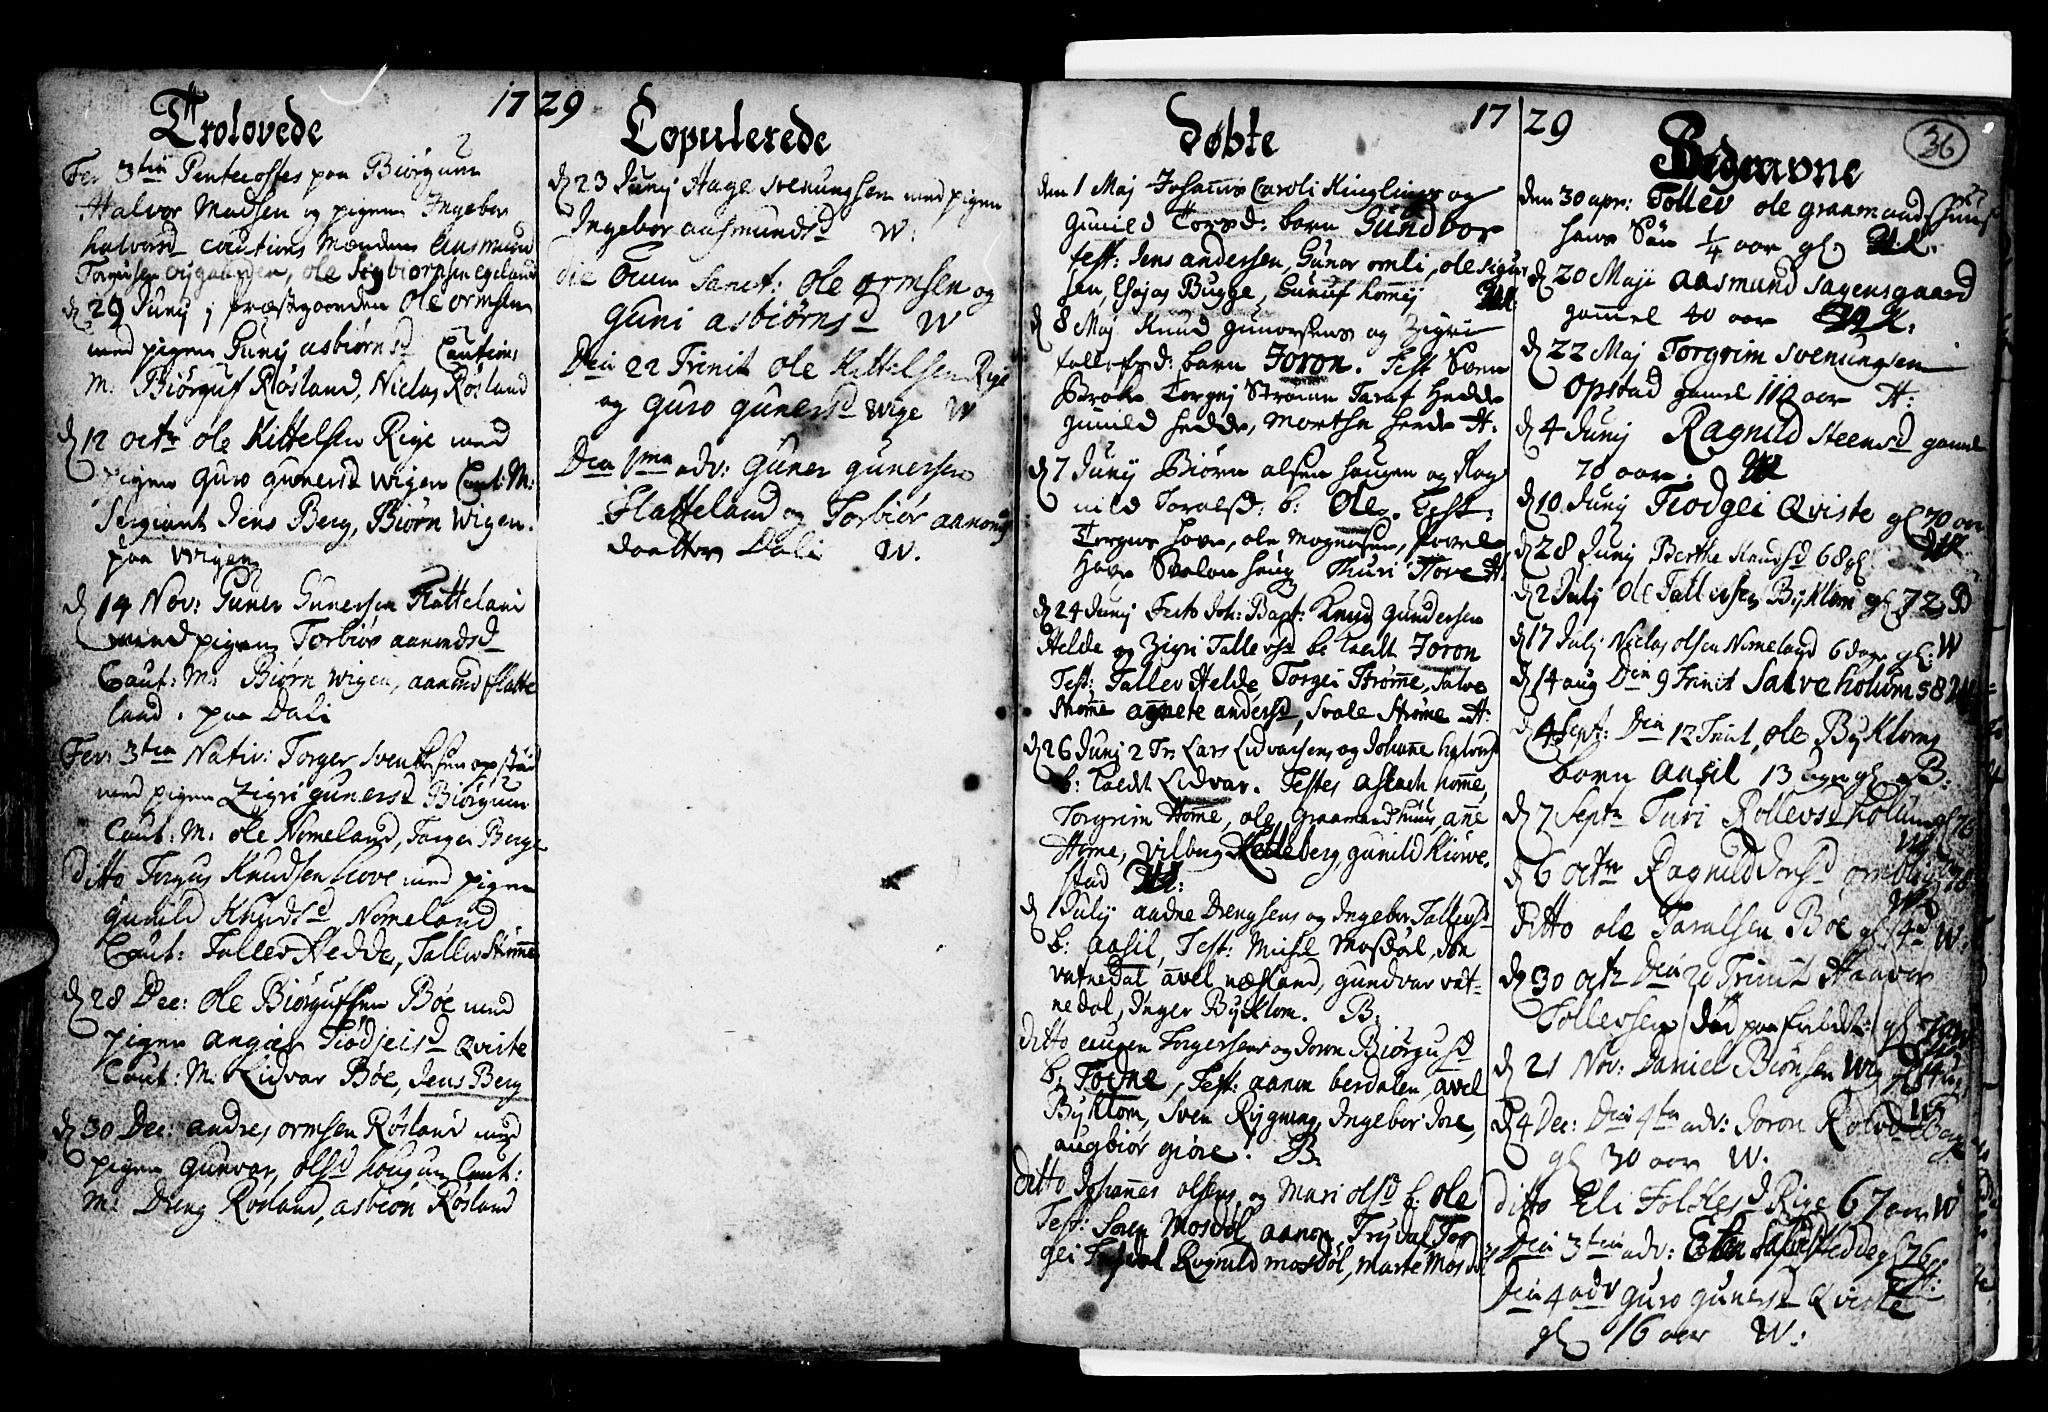 1729
Trolovede
Fer 3tia Pentecostes paa Biørgum
Halvor Madsen og pigen Ingebor
halvorsd cautions Mændene Aasmund
ole Sigbiørnsen Egeland
d 29 Junij i præstegaarden Ole Ormsen
med pigen Guni asbiørnsd Cautions
M: Biørguf Røsland, Niclas Røsland
d 12 octr ole Kittelsen Rige med
pigen Guro gunersd wigen Caut: M:
Sergiant Jens Berg, Biørn Wigen.
paa Wigen
d 14 Nov: Guner Gunersen Flatteland
med pigen Torbiør aanondsd
Caut: M: Biørn Wigen, aanund flatte
land. paa Dali
Fer: 3tia Nativ: Torger Svenungsen opstad
med pigen Zigri gunersd Biørgum
Caut: M: ole Nomeland, Torger Berge
Ditto Torgus Knudsen Hove med pigen
gunild Knudsd Nomeland
Caut: Tallev Hedde, Tallev Strømme
d 28 Dec: ole Biørgufsen Bøe med
pigen angier Tiødjeisd Qviste
Caut: M: Lidvar Bøe, Jens Berg
d 30 Dec: andres ormsen Røsland med
pigen gunvor olsd Hougum Caut:
M: Dreng Røsland, asbiøn Røsland
Copulerede
d 23 Junij Aage Svenungsen med pigen
Ingebor aasmundsd W:
die Omn Sanct: ole ormsen og
Guni asbiørnsd W
Dca 22 Trinit ole Kittelsen Rige
og Guro gunersd wige W
Dca 1ma adv: Guner gunersen
Flatteland og Torbiør aanonds
daatter Dali W.
1729
Døbte
den 1 Maj Johannes Caroli og
Gunild Torsd: barn Gundvor
test: Jens andersen, Guner omli, ole sigur
sen, Esajas Bugge, homej
d 8 Maj Knud gunersens og Zigri
tallefsd: barn Joron. Test Sven
Brokke Torgej Strømme Taraf Hedde
gunild hedde, Morthe hedde H.
d 7 Junij Biørn olsen haugen og Rag
nild Toralsd: b: Ole. Test:
Torgus hove, ole Mognesen, Povel
Hove Svalau haug Thuri Hove H.
d 24 Junij Festo Joh: Bapt: Knud Gundersen
Helde og Zigri Tallevsd b: kaldt Joron
Test: Tallev Helde, Torgei Strømme, Salve
Strømme agnete andersd, Svale Strømme H:
d 26 Junij 2 Tr: Lars Lidvarsens og Johanne halvorsd
b: kaldt Lidvar. Testes aslach homme
Torgrim Homme, ole Graamandshuus, anne
Home, Vilbug Kelleberg, gunild Kiørve
stad
d 1 Julij aadne Drengsens og Ingebor Tallevsd
b: aasil, Test: Michel Mosdøl, Jon
vatnedal avel næsland, gundvar vat
nedol, Inger Bycklom. B.
ditto augen Torgersens og Joron Biørgusd
b: Todne, Test: aanon berdalen, avel
Bycklom, Sven Rygning, Ingebor Jore,
augbiør giøre. B.
Ditto Johannes olsens og Mari olsd b: ole
Test: Soren Mosdøl aanon Trydal Tor
gei Ragnild mosdøl, marte Mosdøl
1729
36
Begravne
den 30 apr: Tollev ole graamandshuus
hans Søn 1/4 aar gl
d 20 Maji aasmund Sagensgaard
gammel 40 aar
d 22 Maj Torgrim Svenungsen
opstad gamel 110 aar H:
d 4 Junij Ragnild Steensd gamel
70 aar:
d 10 Junij Tiodgei Qviste gl 70 aar
d 28 Junij Berthe Knudsd 68 gl
d 2 Julij ole Tallevsen Bycklom gl 72 B
d 17 Julij Niclas olsen Nomeland 6 dage gl: W
d 14 aug Dca 9 Trinit Salve holum 58
d 4 Sept: Dca 12 Trinit, ole Byckloms
barn aasil 13 uger gl B:
d 7 Septr Turi Rollevsd hollum gl 76
d 6 octr Ragnild
W.
Ditto ole Taralsen Bøe gl 14 d W:
d 30 octr Dca 20 Trinit Haavor
Tollevsen død paa fieldet: gl
d 21 Nov: Daniel Biønsen Wig
d 4 Dec: Dca 4ta adv: Joron
gl 30 aar W.
ditto Eli Folkesd Rige 67 aar W
Dca 3tia adv: Hedde gl 76
Dca 4 adv Guro gunersd Qviste
gl 16 aar W: